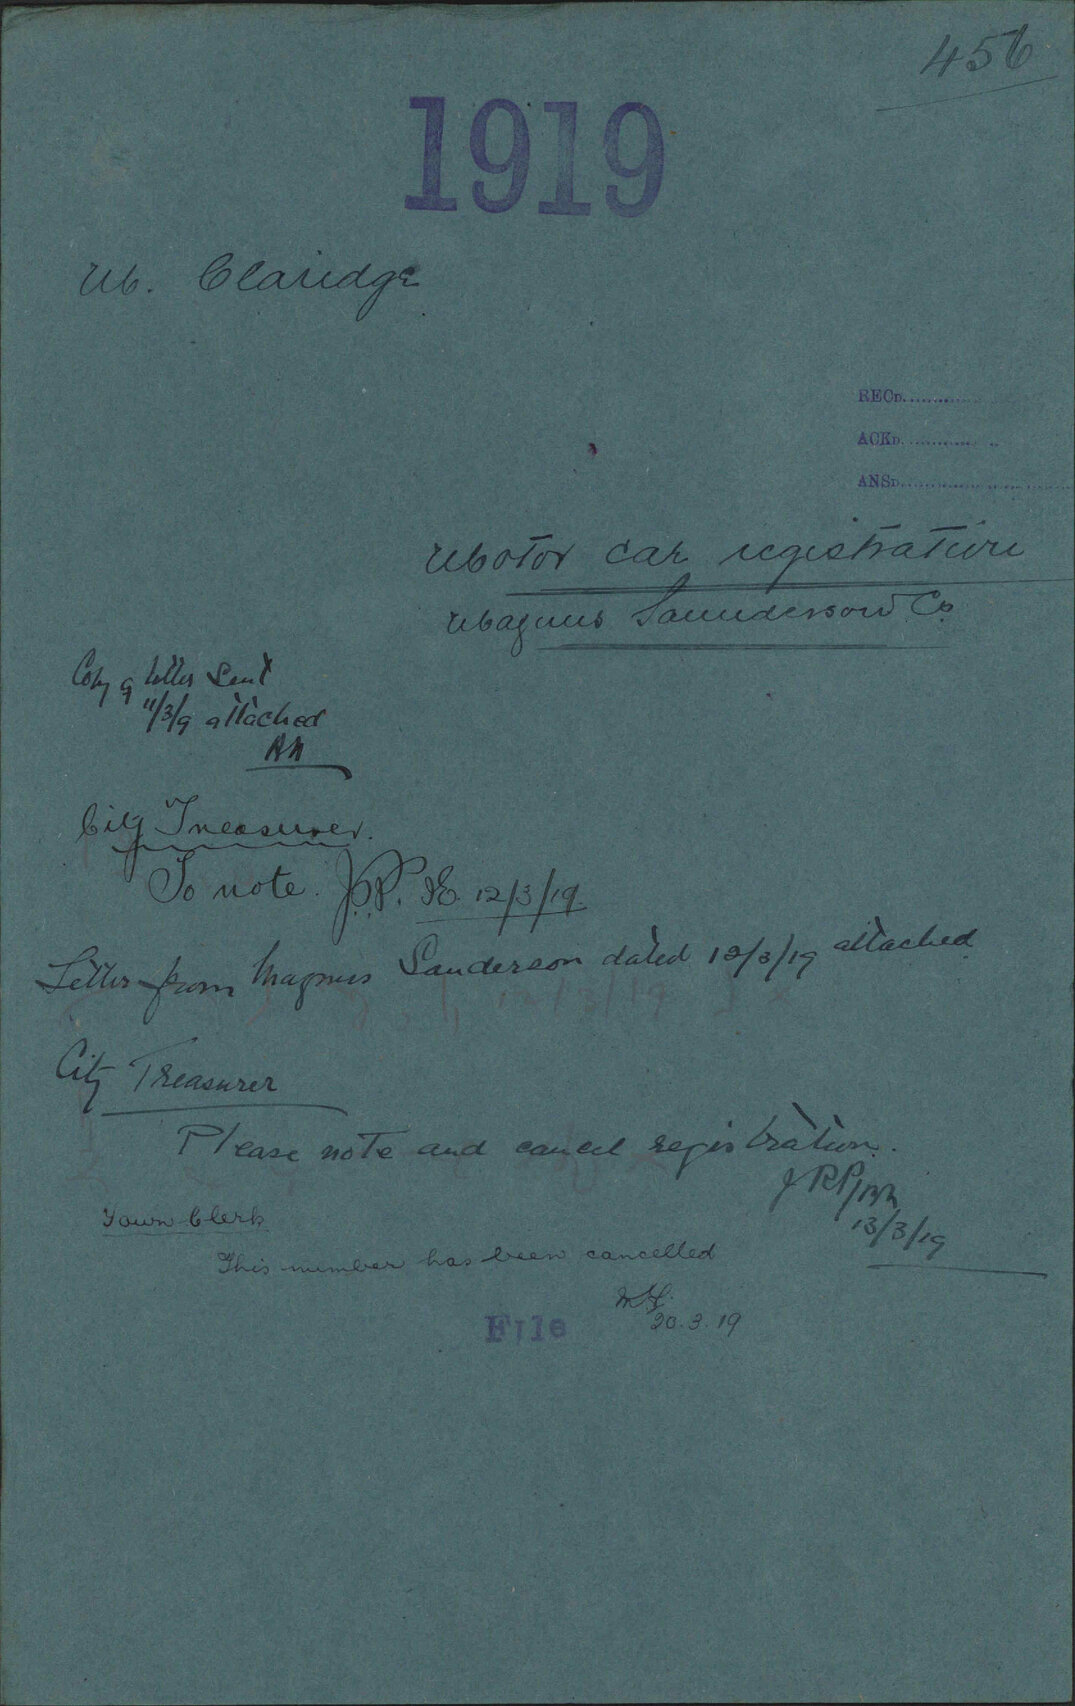 456
1919
M. Claridge
RECD.
ACKD.
ANSD.
Motor car registration
Magnus Saunderson Co
Copy of letter sent
11/3/9 attached
City Treasurer.
To note. J.R.P. 12/3/19.
Letter from Magnus Sanderson dated 12/3/19 attached
City Treasurer
Please note and cancel registration.
JRP/
13/3/19
Town Clerk
This number has been cancelled
20.3.19
File